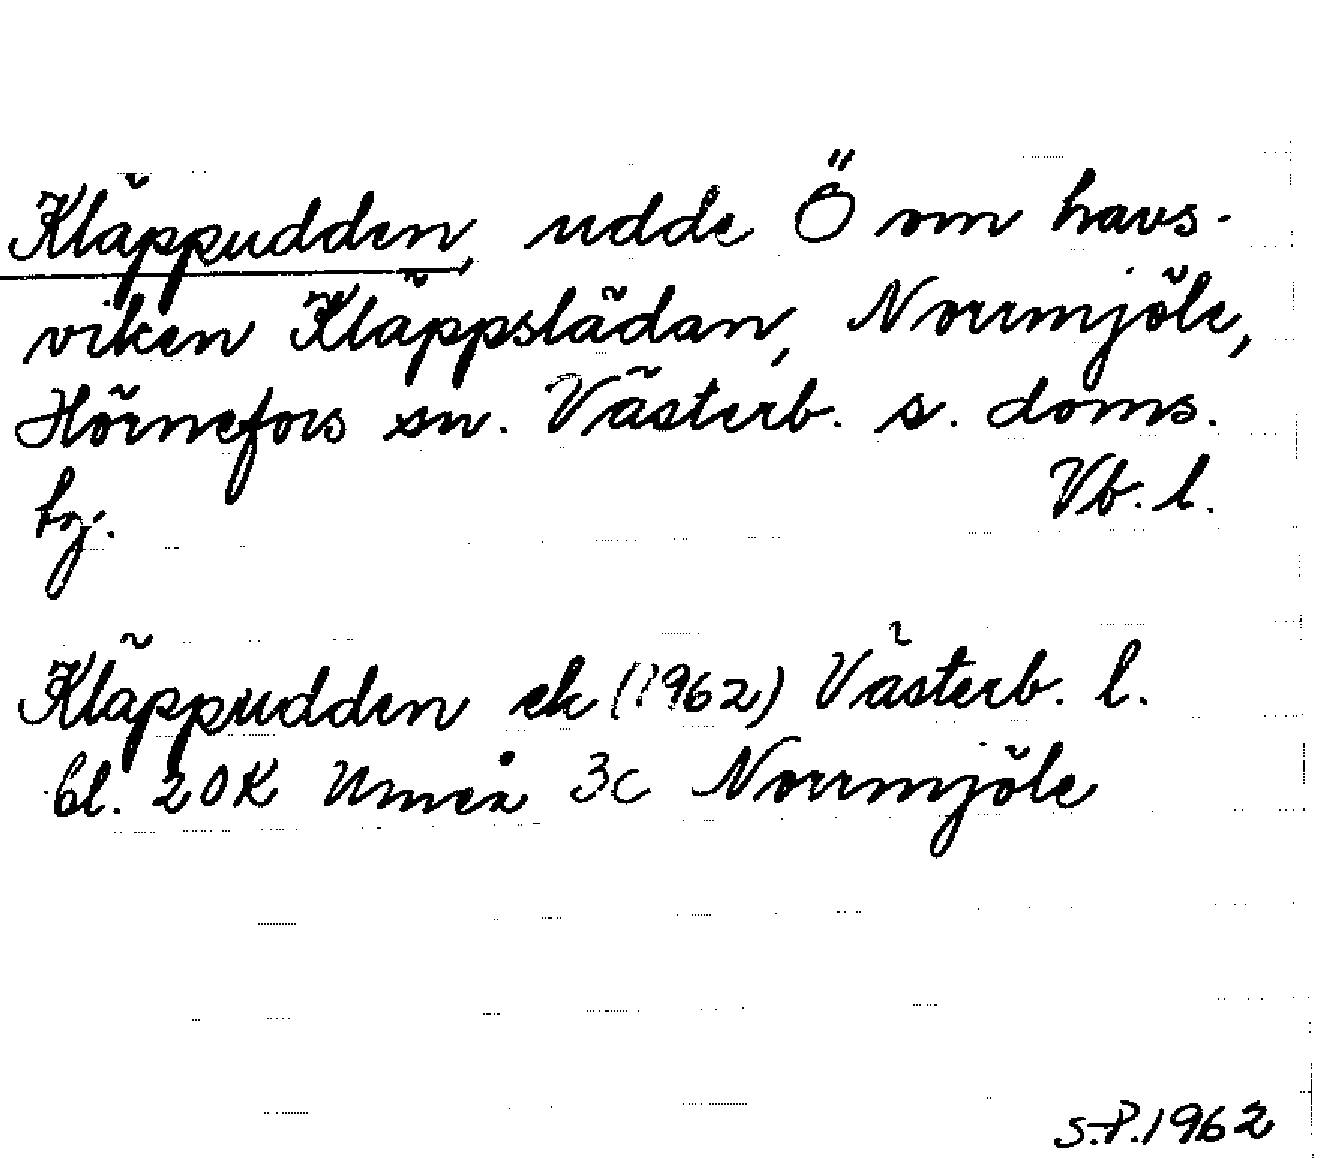 Kläppudden, udde Ö om havs-
viken Kläppslädan, Norrmjöle,
Hörnefors sn. Västerb. s. doms.
hj. Vb. l.
Kläppudden ek (1962) Västerb. l.
bl. 20K Umeå 3c Norrmjöle
S.P. 1962